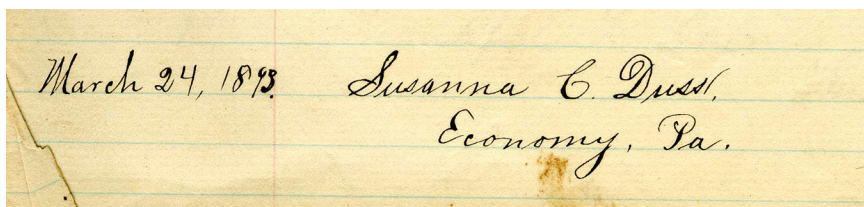 March 24, 1893. Susanna C. Duss,
Economy, Pa.